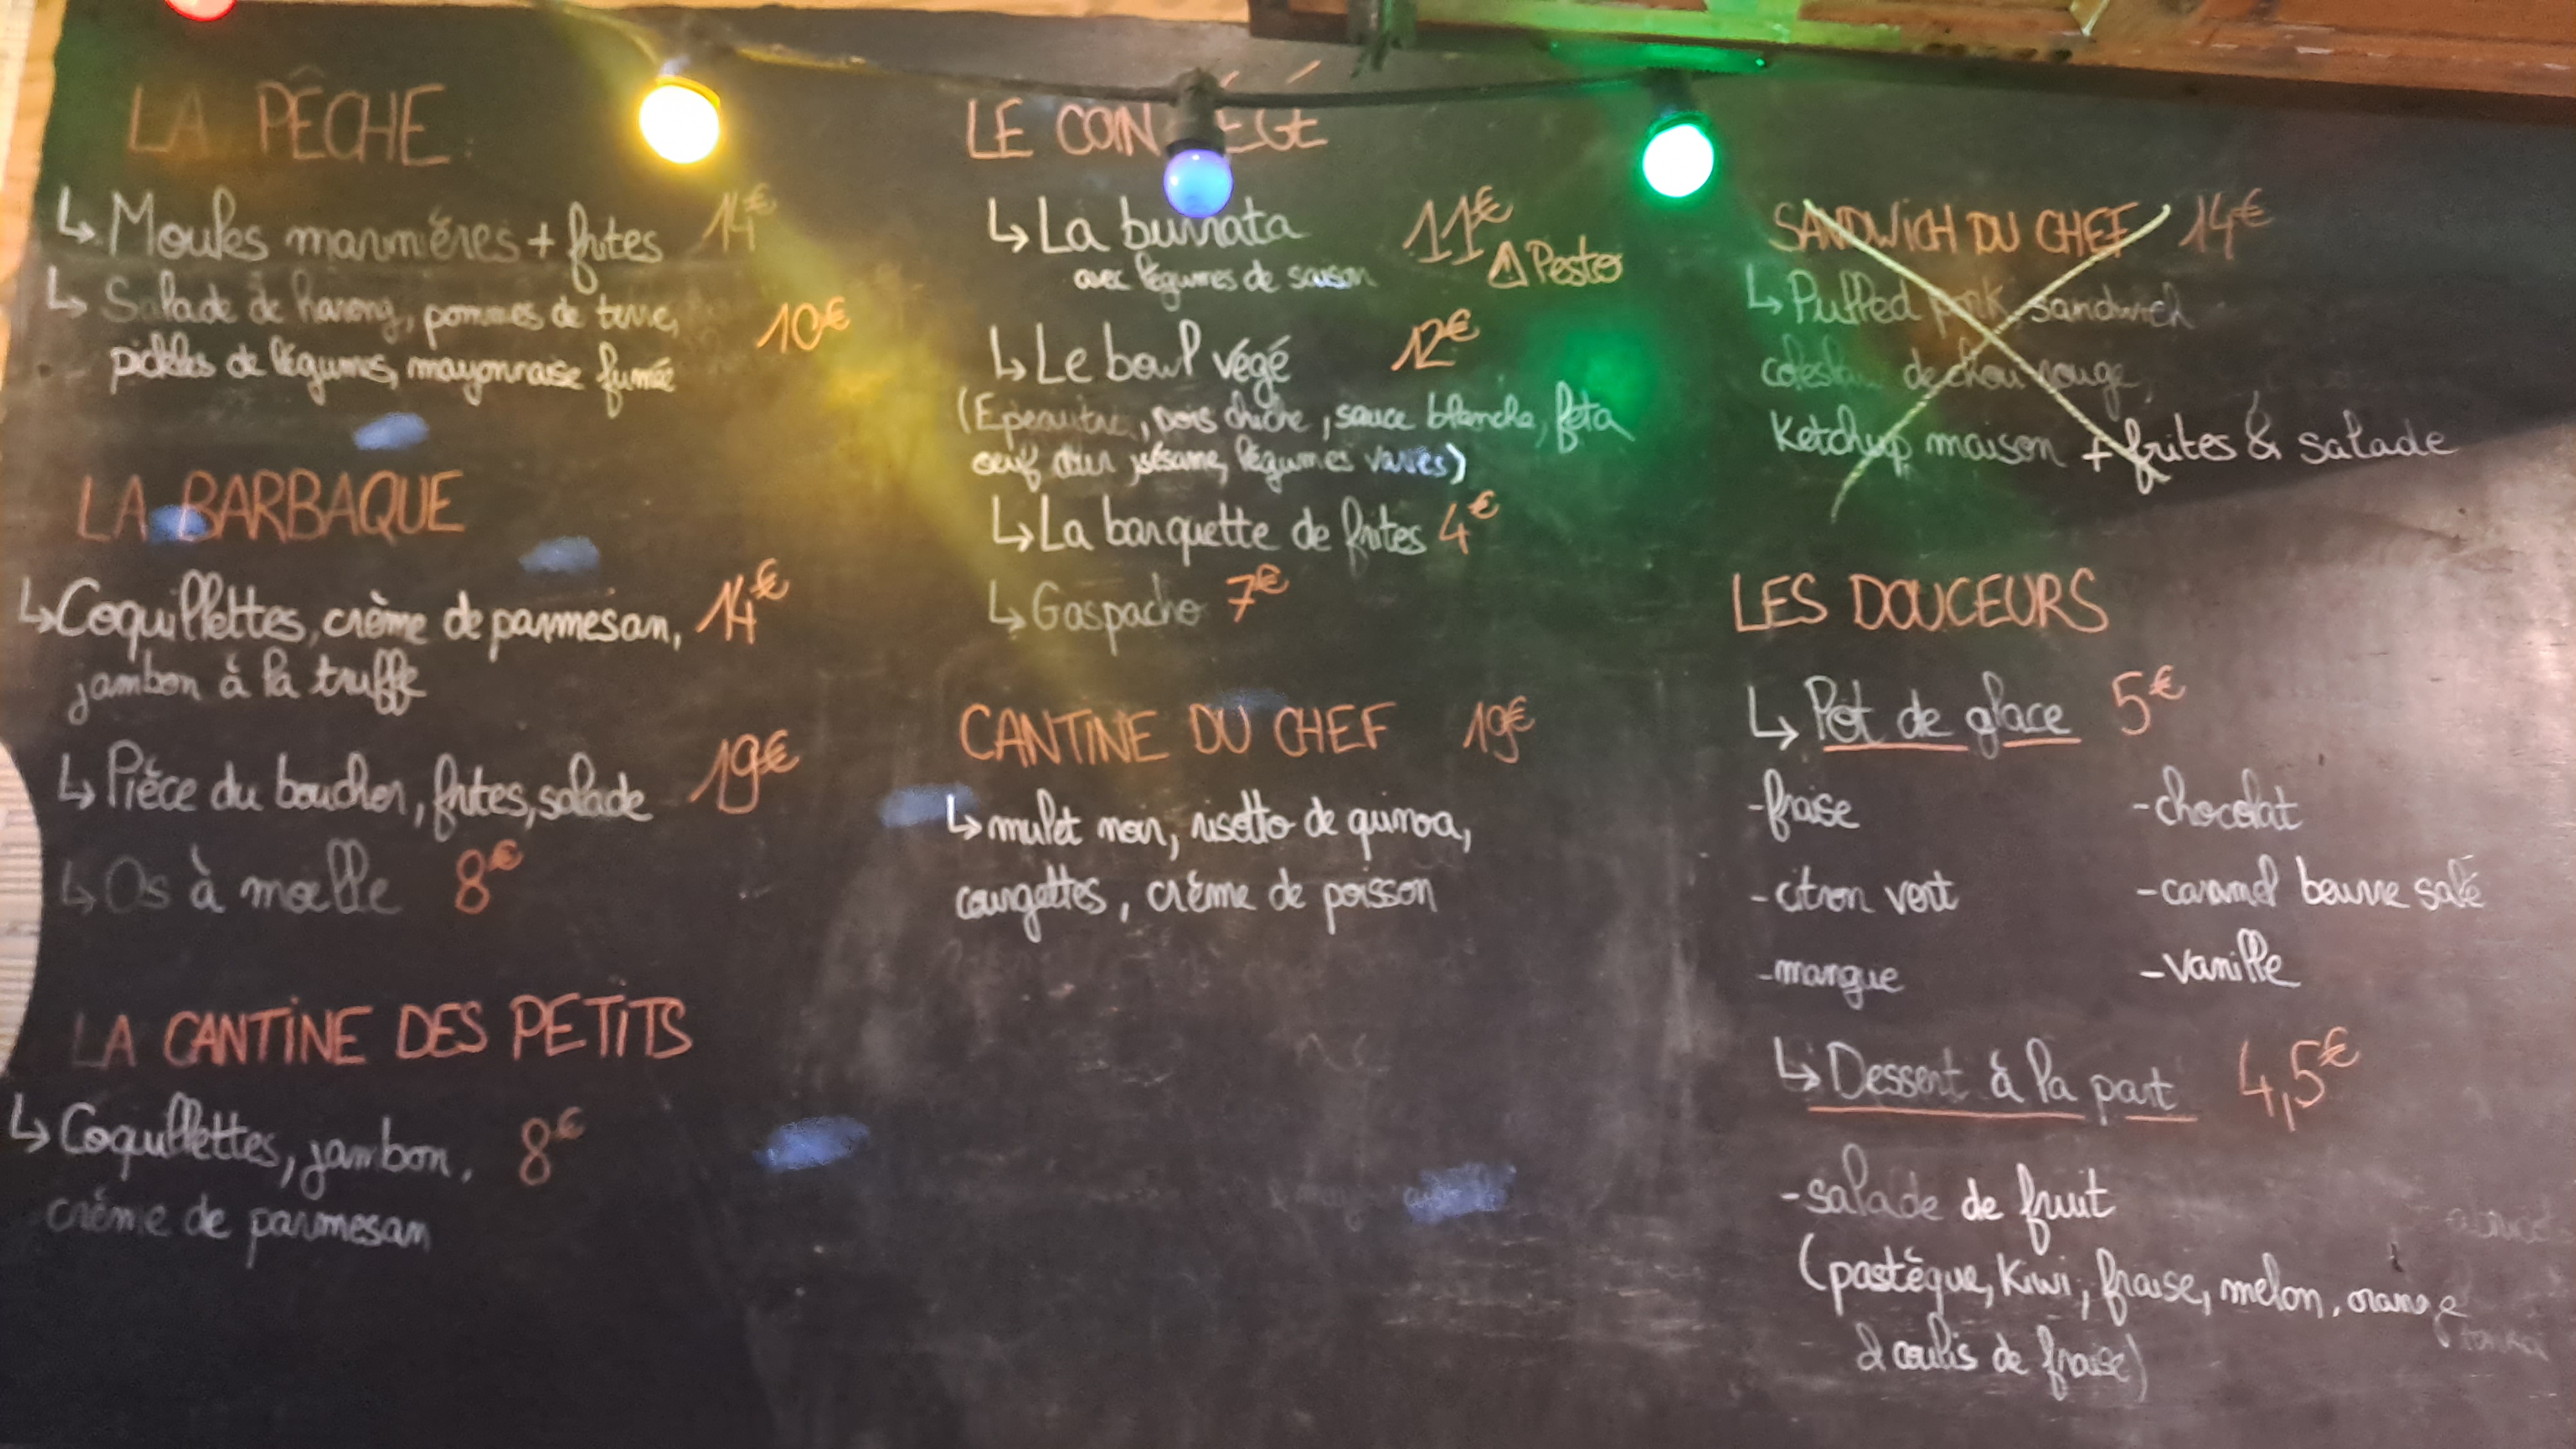 LA PÊCHE
↳ Moules marinières + frites 14€
↳ Salade de hareng, pommes de terre, 10€
pickles de légumes, mayonnaise fumée
LA BARBAQUE
↳ Coquillettes, crème de parmesan, 14€
jambon à la truffe
↳ Pièce du boucher, frites, salade 19€
↳ Os à moelle 8€
LA CANTINE DES PETITS
↳ Coquillettes, jambon, 8€
crème de parmesan
LE COIN ÉGÉ
↳ La burrata 11€
avec légumes de saison ⚠ Pesto
↳ Le bowl végé 12€
(Epeautre, pois chiche, sauce blanche, feta
oeuf dur, sésame, légumes variés)
↳ La barquette de frites 4€
↳ Gaspacho 7€
CANTINE DU CHEF 19€
↳ mulet noir, risotto de quinoa,
courgettes, crème de poisson
SANDWICH DU CHEF 14€
↳ Pulled pork sandwich
coleslaw de chou rouge,
Ketchup maison + frites & salade
LES DOUCEURS
↳ Pot de glace 5€
- fraise - chocolat
- citron vert - caramel beurre salé
- mangue - vanille
↳ Dessert à la part 4,5€
- salade de fruit
(pastèque, kiwi, fraise, melon, orange
& coulis de fraise)